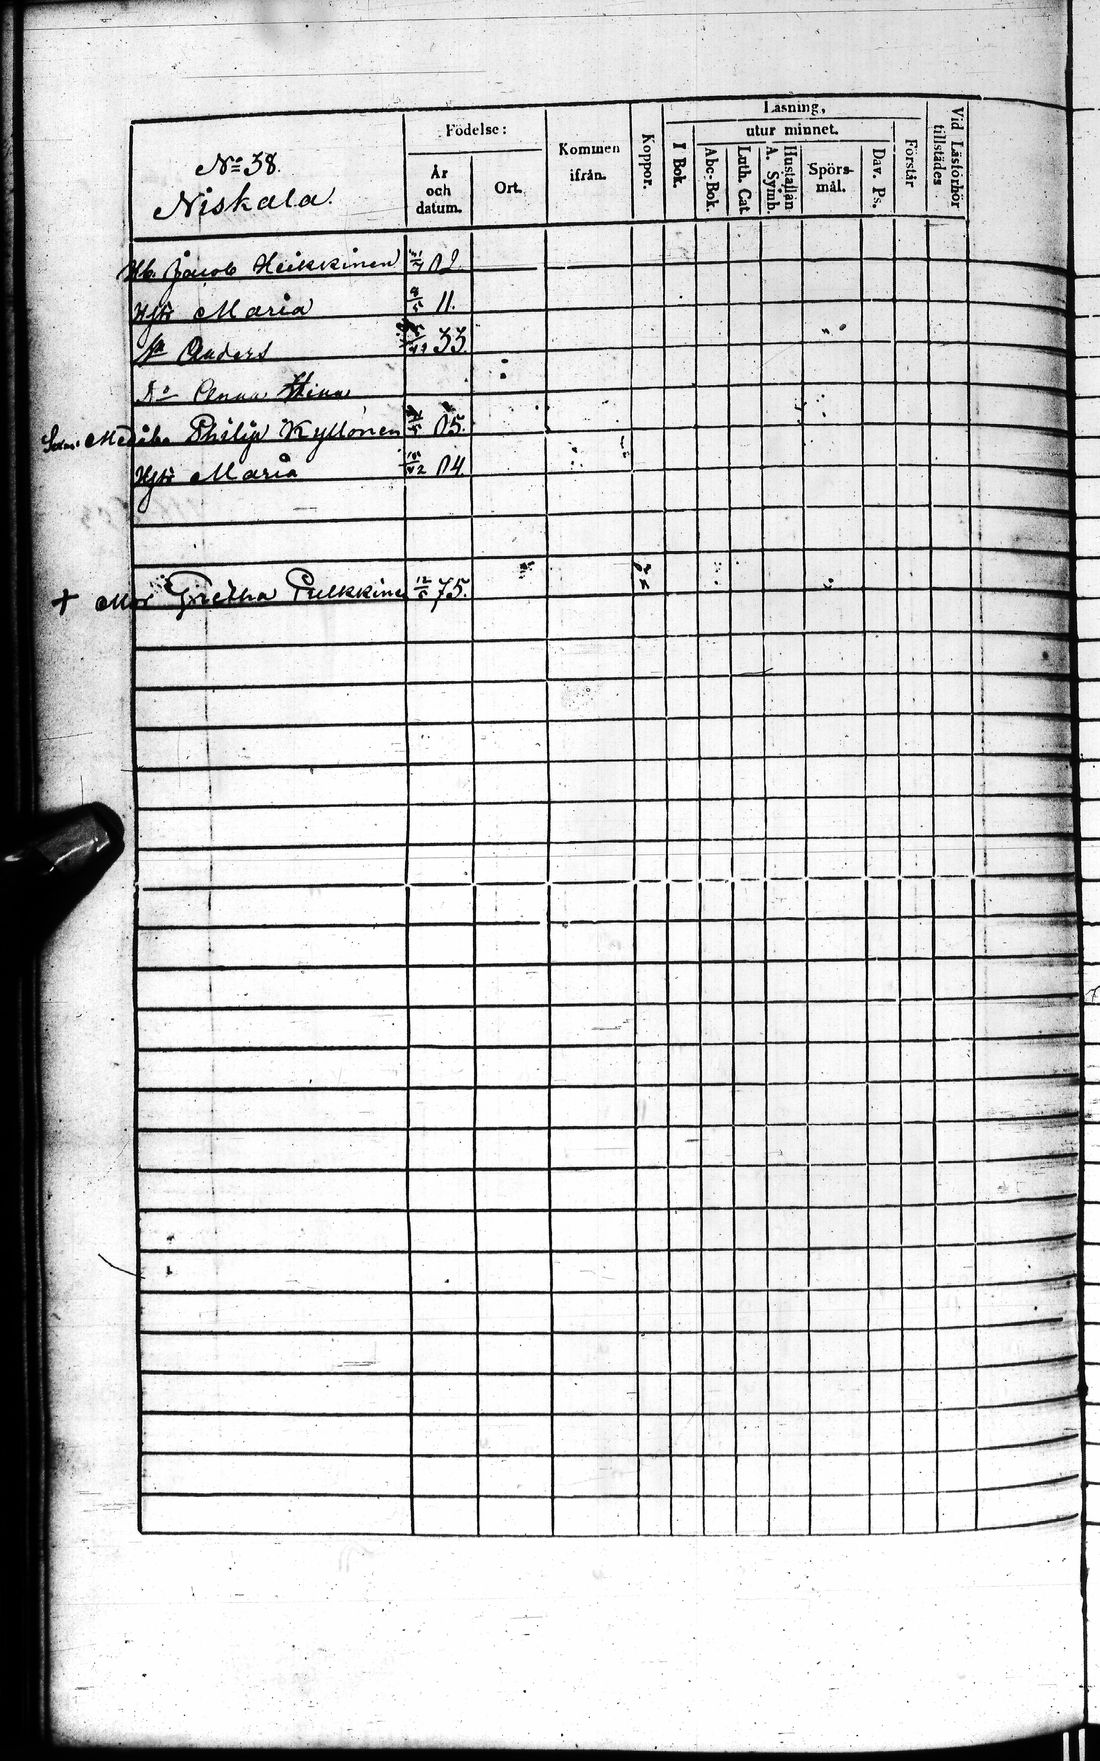 Nº 38.
Niskala.
Födelse:
År och datum.
Ort.
Kommen ifrån.
Koppor.
Läsning,
utur minnet.
I Bok.
Abc-Bok.
Luth. Cat.
Hustaflan A. Symb.
Spörs-mål.
Dav. Ps.
Förstår
Vid Läsförhör tillstädes
Hb. Jacob Heikkinen 02.
Hst Maria 8/5 11.
Anders 33.
Dº Anna Stina
Philip Kyllönen 05.
Hst Maria 04
+ Mor Gretha Pulkkinen 12/5 75.